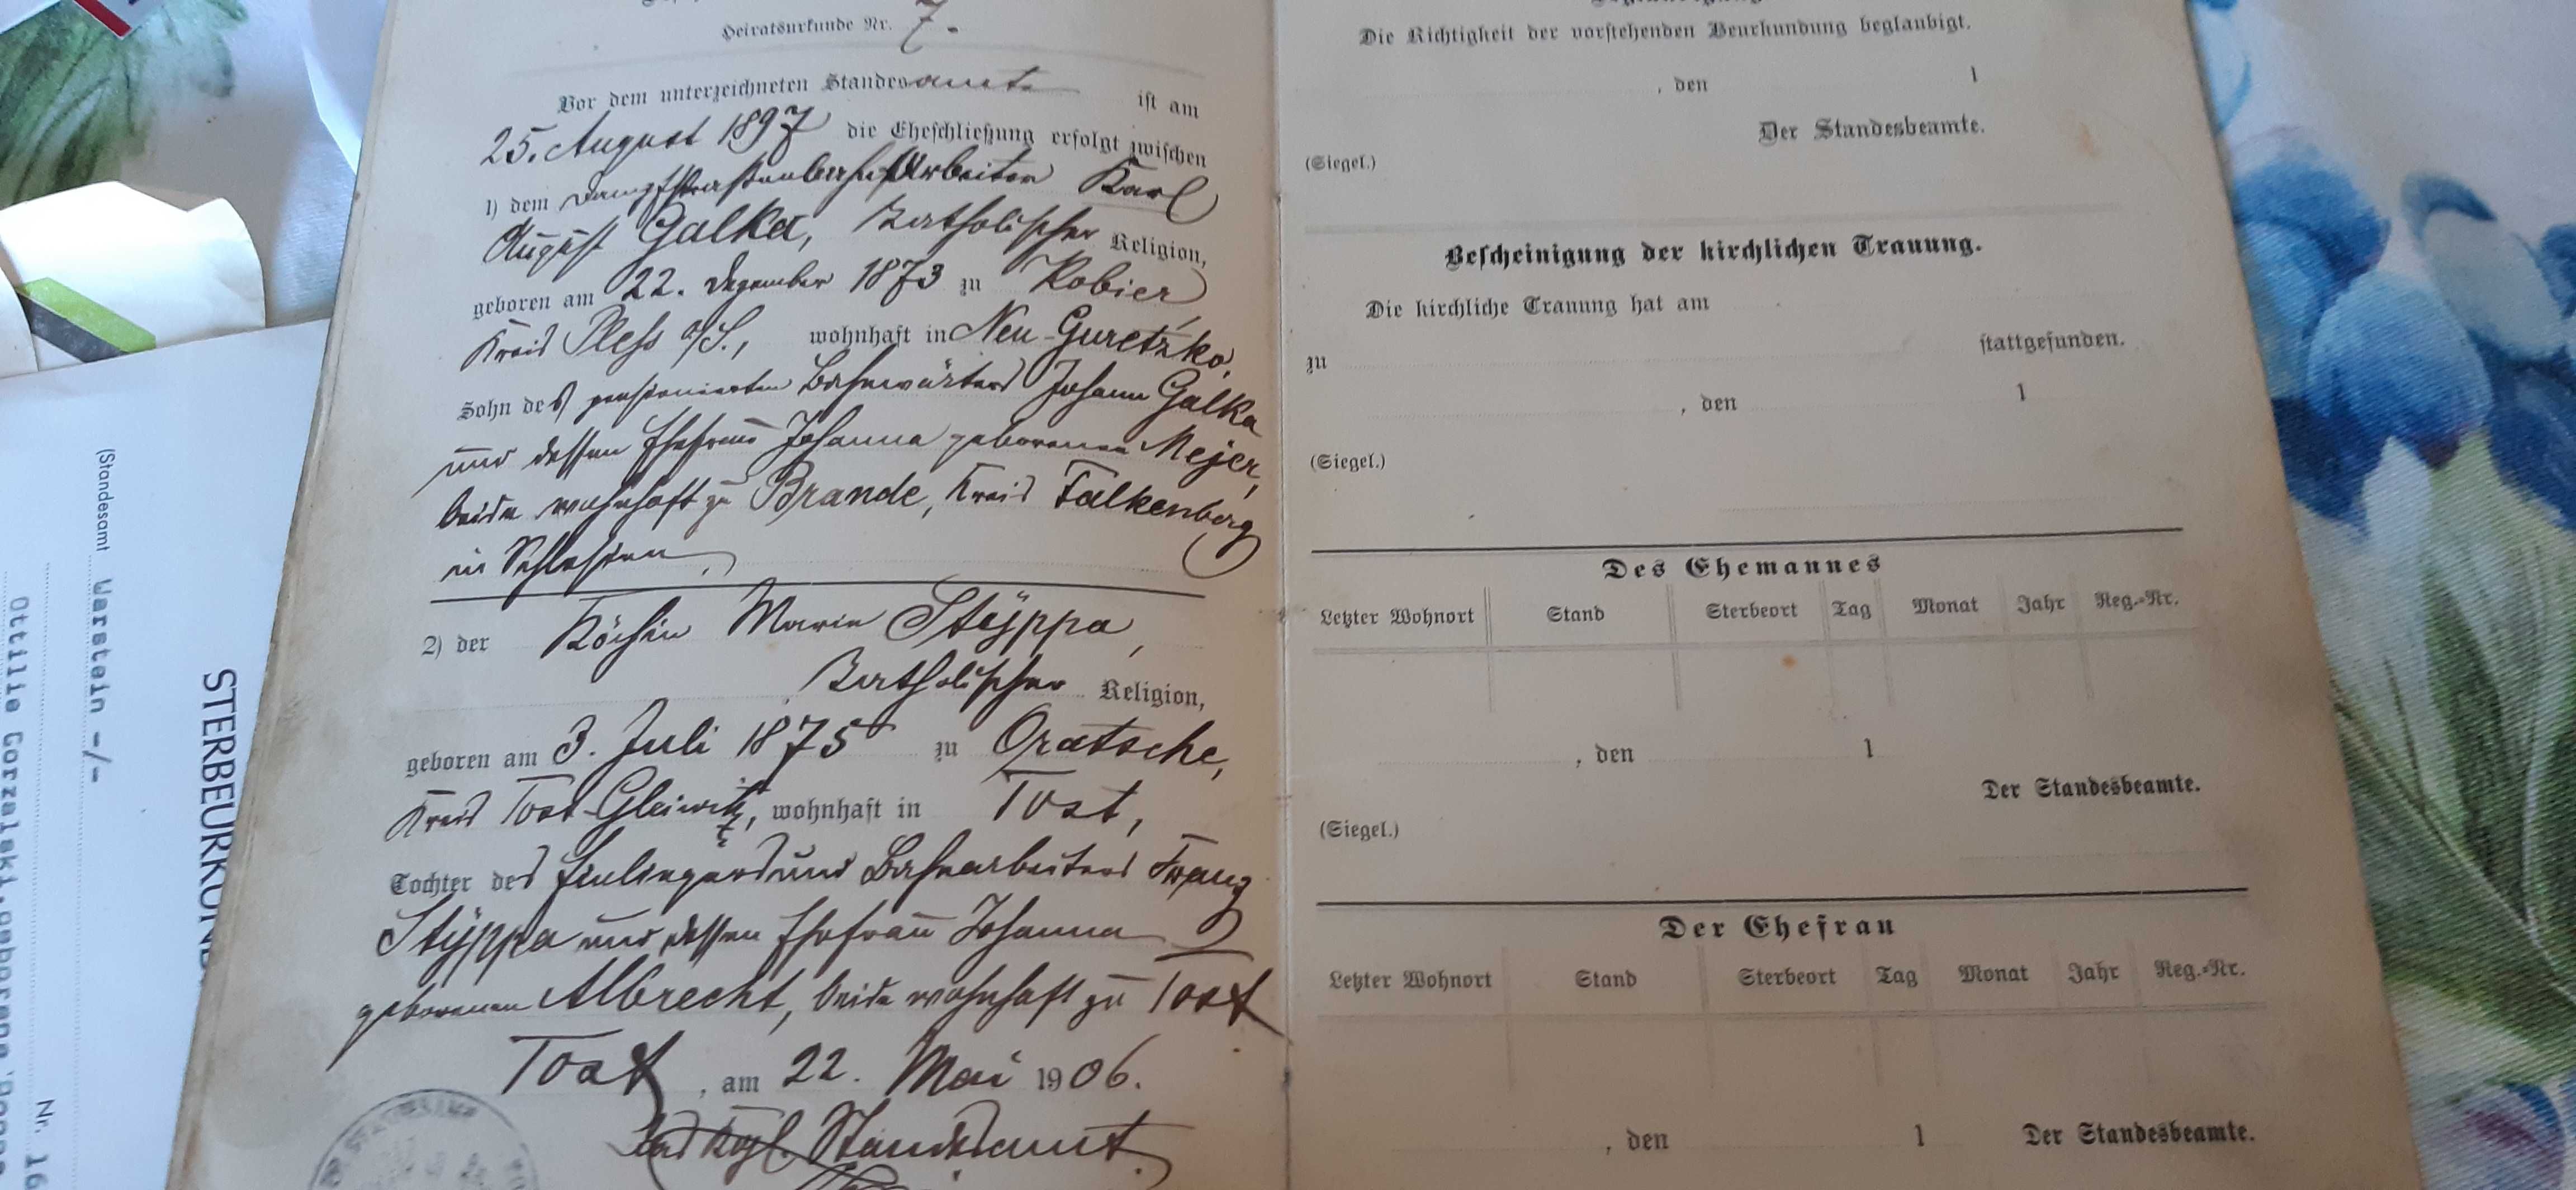 Heiratsurkunde Nr. 7.
Vor dem unterzeichneten Standesamte ist am
25. August 1897 die Eheschließung erfolgt zwischen
1) dem Dampfstraßenbahnarbeiter Karl
August Galka, katholischer Religion,
geboren am 22. Dezember 1873 zu Kobier,
Kreis Pless o/S., wohnhaft in Neu-Guretzko,
Sohn des pensionierten Bahnwärters Johann Galka
und dessen Ehefrau Johanna geborenen Mejer,
beide wohnhaft zu Brande, Kreis Falkenberg
in Schlesien,
2) der Köchin Marie Stÿppa,
katholischer Religion,
geboren am 3. Juli 1875 zu Oratsche,
Kreis Tost-Gleiwitz, wohnhaft in Tost,
Tochter des Einliegers und Bahnarbeiters Franz
Stÿppa und dessen Ehefrau Johanna
geborenen Albrecht, beide wohnhaft zu Tost
Tost, am 22. Mai 1906.
Das Kgl. Standesamt.
Die Richtigkeit der vorstehenden Beurkundung beglaubigt.
, den 1
Der Standesbeamte.
(Siegel.)
Bescheinigung der kirchlichen Trauung.
Die kirchliche Trauung hat am
zu stattgefunden.
, den 1
(Siegel.)
Des Ehemannes
Letzter Wohnort Stand Sterbeort Tag Monat Jahr Reg.-Nr.
, den 1
Der Standesbeamte.
(Siegel.)
Der Ehefrau
Letzter Wohnort Stand Sterbeort Tag Monat Jahr Reg.-Nr.
, den 1 Der Standesbeamte.
STERBEURKUND
(Standesamt Warstein -/-
Nr. 16
Ottilie Gorzalski, geborene